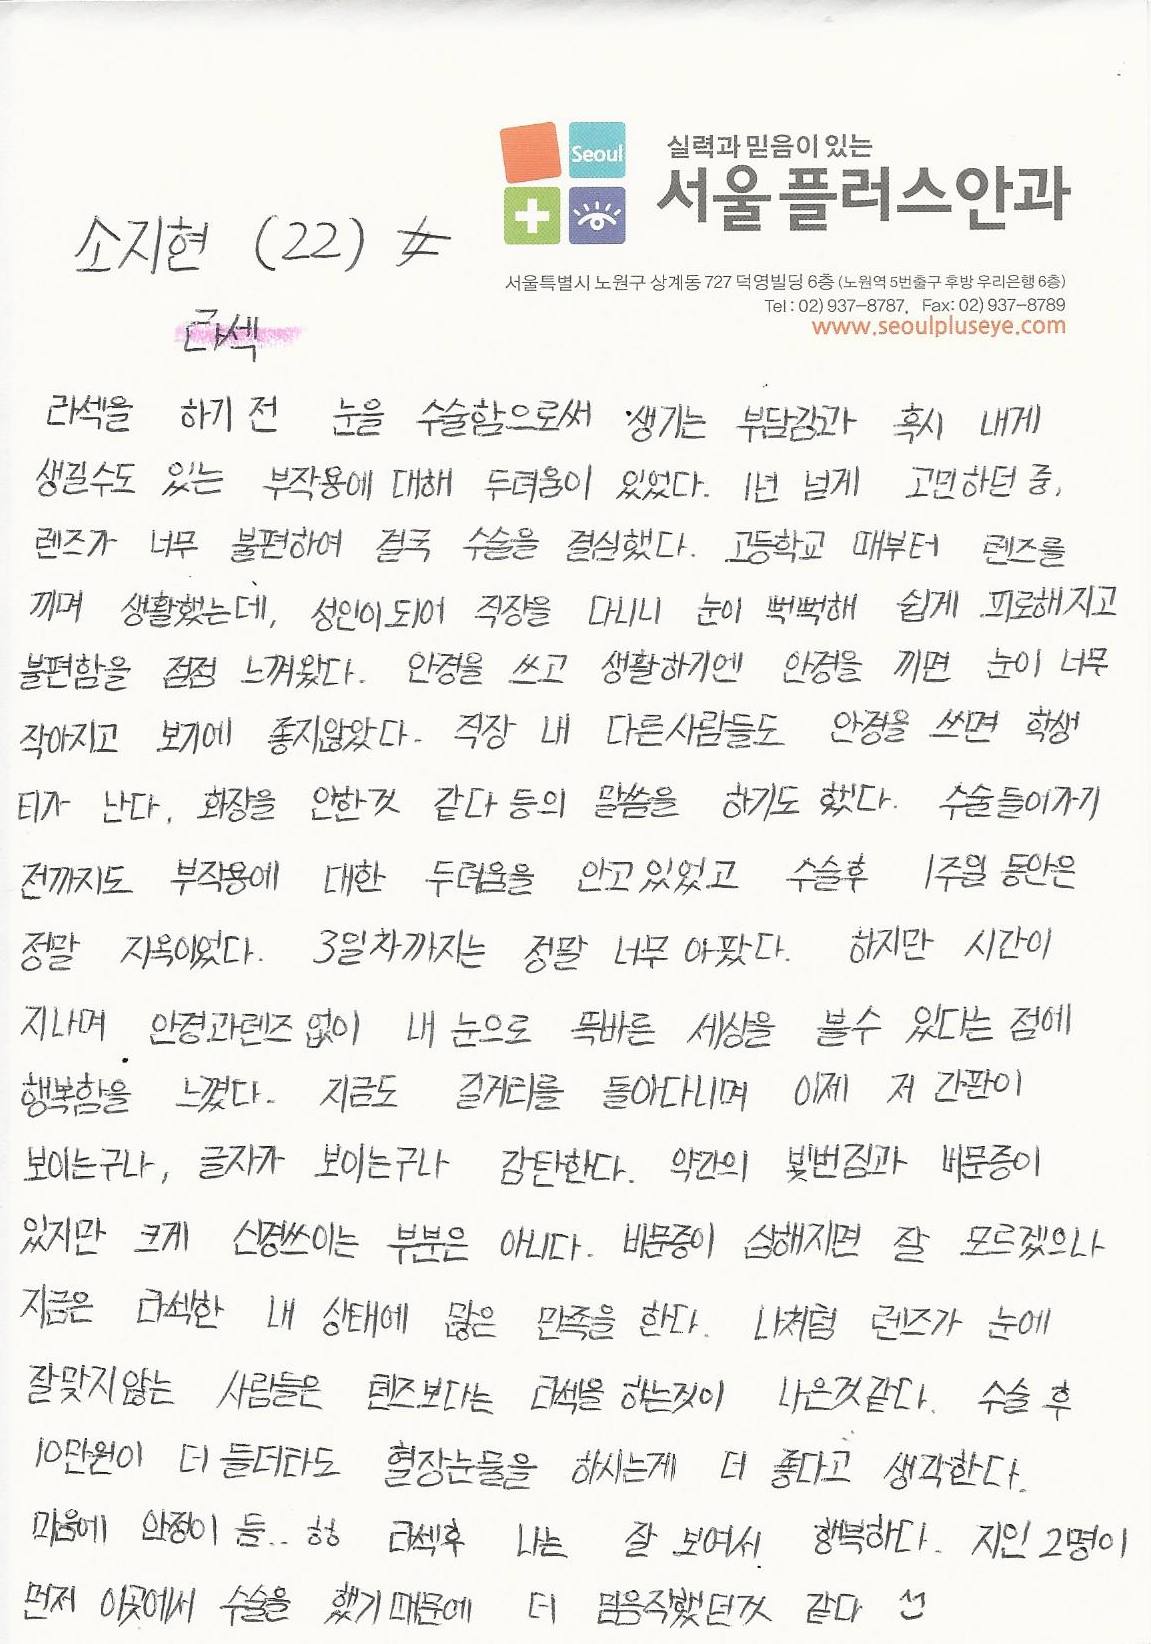 Seoul
실력과 믿음이 있는
서울플러스안과
서울특별시 노원구 상계동 727 덕영빌딩 6층 (노원역 5번출구 후방 우리은행 6층)
Tel : 02) 937-8787, Fax: 02) 937-8789
www.seoulpluseye.com
소지현 (22) 女
라섹
라섹을 하기 전 눈을 수술함으로써 생기는 부담감과 혹시 내게
생길수도 있는 부작용에 대해 두려움이 있었다. 1년 넘게 고민하던 중,
렌즈가 너무 불편하여 결국 수술을 결심했다. 고등학교 때부터 렌즈를
끼며 생활했는데, 성인이되어 직장을 다니니 눈이 뻑뻑해 쉽게 피로해지고
불편함을 점점 느껴왔다. 안경을 쓰고 생활하기엔 안경을 끼면 눈이 너무
작아지고 보기에 좋지않았다. 직장 내 다른사람들도 안경을 쓰면 학생
티가 난다, 화장을 안한것 같다 등의 말씀을 하기도 했다. 수술들어가기
전까지도 부작용에 대한 두려움을 안고있었고 수술후 1주일 동안은
정말 지옥이었다. 3일차까지는 정말 너무 아팠다. 하지만 시간이
지나며 안경과렌즈 없이 내 눈으로 똑바른 세상을 볼수 있다는 점에
행복함을 느꼈다. 지금도 길거리를 돌아다니며 이제 저 간판이
보이는구나, 글자가 보이는구나 감탄한다. 약간의 빛번짐과 비문증이
있지만 크게 신경쓰이는 부분은 아니다. 비문증이 심해지면 잘 모르겠으나
지금은 라섹한 내 상태에 많은 만족을 한다. 나처럼 렌즈가 눈에
잘맞지않는 사람들은 렌즈보다는 라섹을 하는것이 나은것같다. 수술 후
10만원이 더 들더라도 혈장눈물을 하시는게 더 좋다고 생각한다.
마음에 안정이 듬.. ㅎㅎ 라섹후 나는 잘 보여서 행복하다. 지인 2명이
먼저 이곳에서 수술을 했기때문에 더 믿음직했던것 같다 선